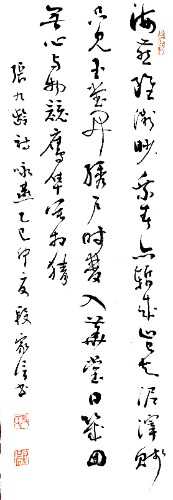 海燕雖微眇乘春亦暫來豈知泥滓賤
只見玉堂開繡戶時雙入華堂日幾回
無心與物競鷹隼莫相猜
張九齡詩詠燕乙巳仲夏段家信书